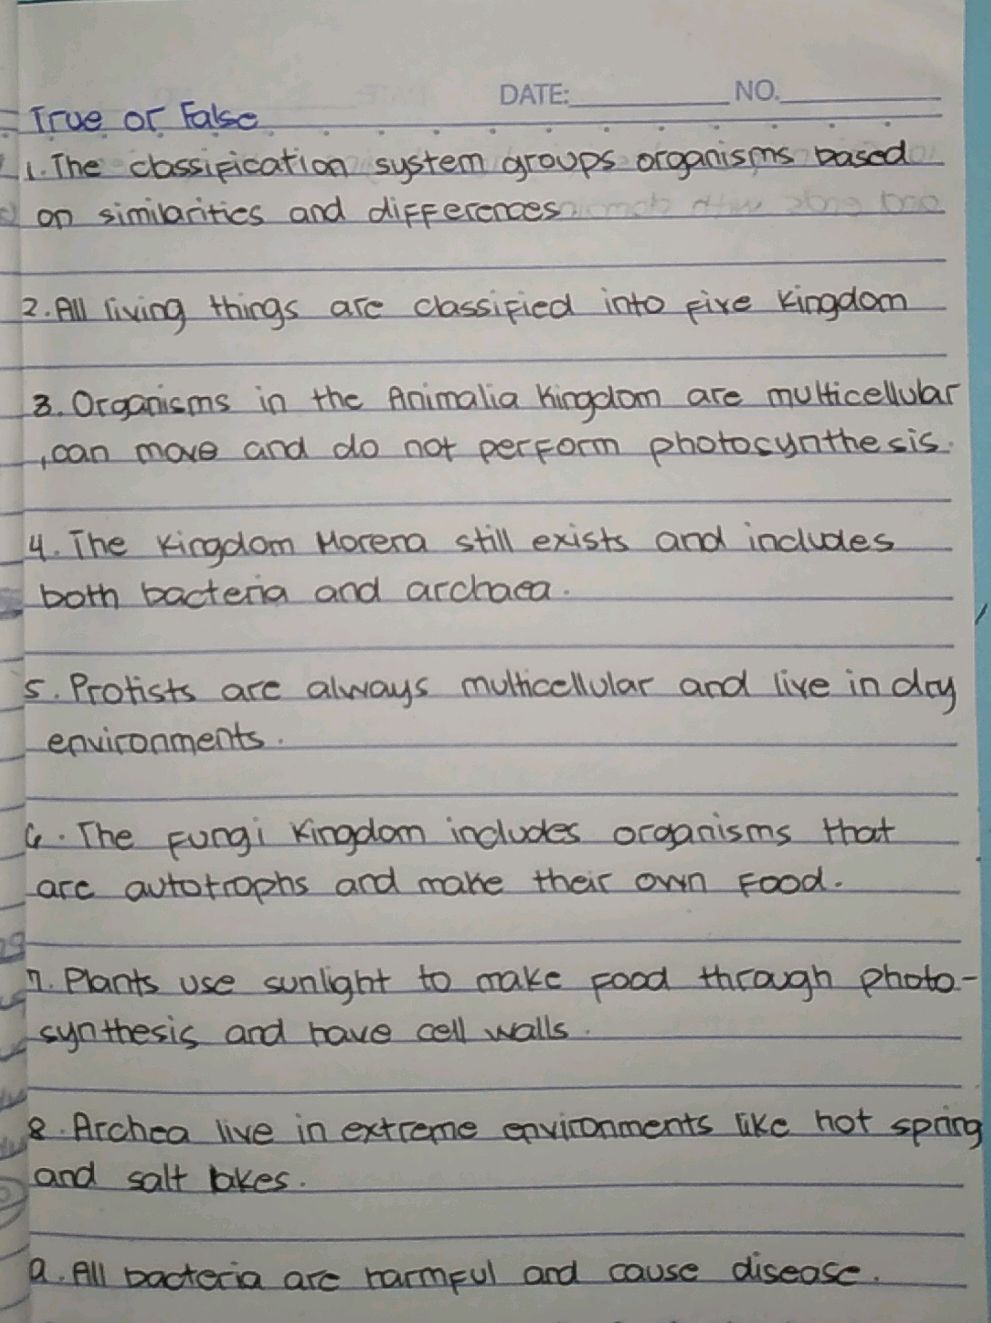 DATE: NO.
True or False
1. The classification system groups organisms based
on similarities and differences
2. All living things are classified into five kingdom
3. Organisms in the Animalia Kingdom are multicellular
, can move and do not perform photosynthesis.
4. The Kingdom Morena still exists and includes
both bacteria and archaea.
5. Protists are always multicellular and live in dry
environments.
6. The Fungi Kingdom includes organisms that
are autotrophs and make their own Food.
7. Plants use sunlight to make food through photo-
synthesis and have cell walls.
8. Archea live in extreme environments like hot spring
and salt lakes.
9. All bacteria are harmful and cause disease.